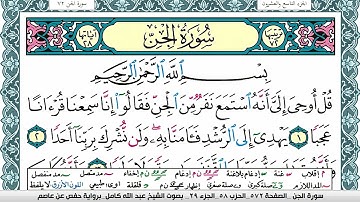 الجزء التاسع والعشرون
سورة الجن ٧٢
سُورَةُ الْجِنّ
بِسْمِ اللَّهِ الرَّحْمَٰنِ الرَّحِيمِ
قُلْ أُوحِيَ إِلَيَّ أَنَّهُ اسْتَمَعَ نَفَرٌ مِّنَ الْجِنِّ فَقَالُوٓا۟ إِنَّا سَمِعْنَا قُرْءَانًا
عَجَبًا ١ يَهْدِىٓ إِلَى الرُّشْدِ فَـَٔامَنَّا بِهِۦ وَلَن نُّشْرِكَ بِرَبِّنَآ أَحَدًا ٢
سورة الجن . الصفحة ٥٧٢ . الحزب ٥٨ . الجزء ٢٩ . بصوت الشيخ عبد الله كامل . برواية حفص عن عاصم